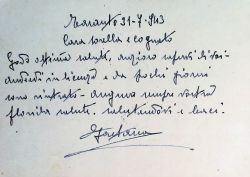 Taranto 21-7-943
Cara sorella e cognato
Godo ottima salute, anzioso sapervi di
in licenza e da pochi giorni
sono rientrato - auguro sempre vostra
florida salute. salutandovi e baci
Gaetano